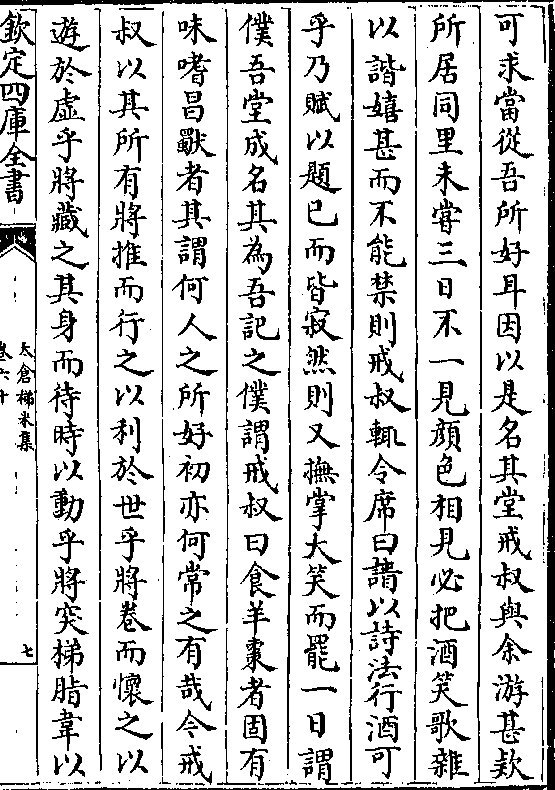 可求當從吾所好耳因以是名其堂戒叔與余游甚欵
所居同里未甞三日不一見顔色相見必把酒笑歌雜
以諧嬉甚而不能禁則戒叔輒令席曰請以詩法行酒可
乎乃賦以題已而皆寂然則又撫掌大笑而罷一日謂
僕吾堂成名其為吾記之僕謂戒叔曰食羊棗者固有
味嗜昌歜者其謂何人之所好初亦何常之有哉今戒
叔以其所有將推而行之以利於世乎將卷而懷之以
遊於虚乎將藏之其身而待時以動乎將突梯脂韋以
欽定四庫全書
太倉稊米集
卷六十
七